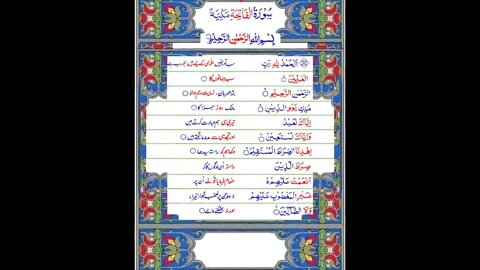 سُورَةُ الْفَاتِحَةِ مَكِّيَّة
بِسْمِ اللّٰهِ الرَّحْمٰنِ الرَّحِيْمِ
اَلْحَمْدُ لِلّٰهِ رَبِّ سب تعریفیں اللہ کے لیے ہیں جو رب ہے
الْعٰلَمِيْنَ سب جہانوں کا
الرَّحْمٰنِ الرَّحِيْمِ بڑا مہربان، نہایت رحم والا
مٰلِكِ يَوْمِ الدِّيْنِ مالک روز جزا کا
اِيَّاكَ نَعْبُدُ تیری ہی ہم عبادت کرتے ہیں
وَاِيَّاكَ نَسْتَعِيْنُ اور تجھ ہی سے مدد مانگتے ہیں
اِهْدِنَا الصِّرَاطَ الْمُسْتَقِيْمَ دکھا ہم کو راستہ سیدھا
صِرَاطَ الَّذِيْنَ راستہ اُن لوگوں کا کہ
اَنْعَمْتَ عَلَيْهِمْ انعام فرمایا تو نے اُن پر
غَيْرِ الْمَغْضُوْبِ عَلَيْهِمْ نہ وہ جن پر غضب ہوا تیرا
وَلَا الضَّآلِّيْنَ اور نہ بھٹکنے والے